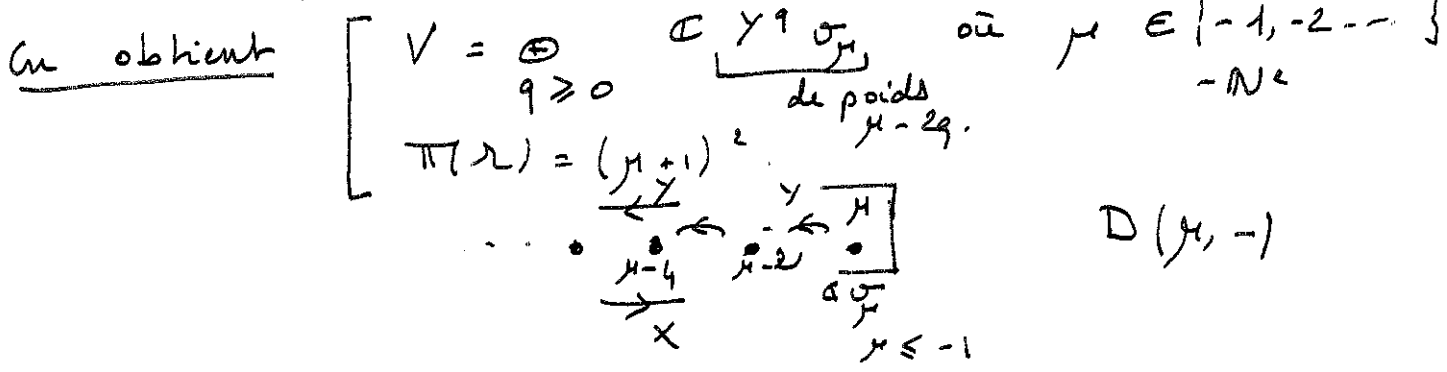 On obtient V = ⊕ ℂ Y^q v_μ où μ ∈ {-1, -2 --- }
q ≥ 0 de poids μ - 2q. -ℕ*
π(Ω) = (μ+1)²
Y Y μ
... μ-4 μ-2 ℂ v_μ D(μ, -)
X μ ≤ -1